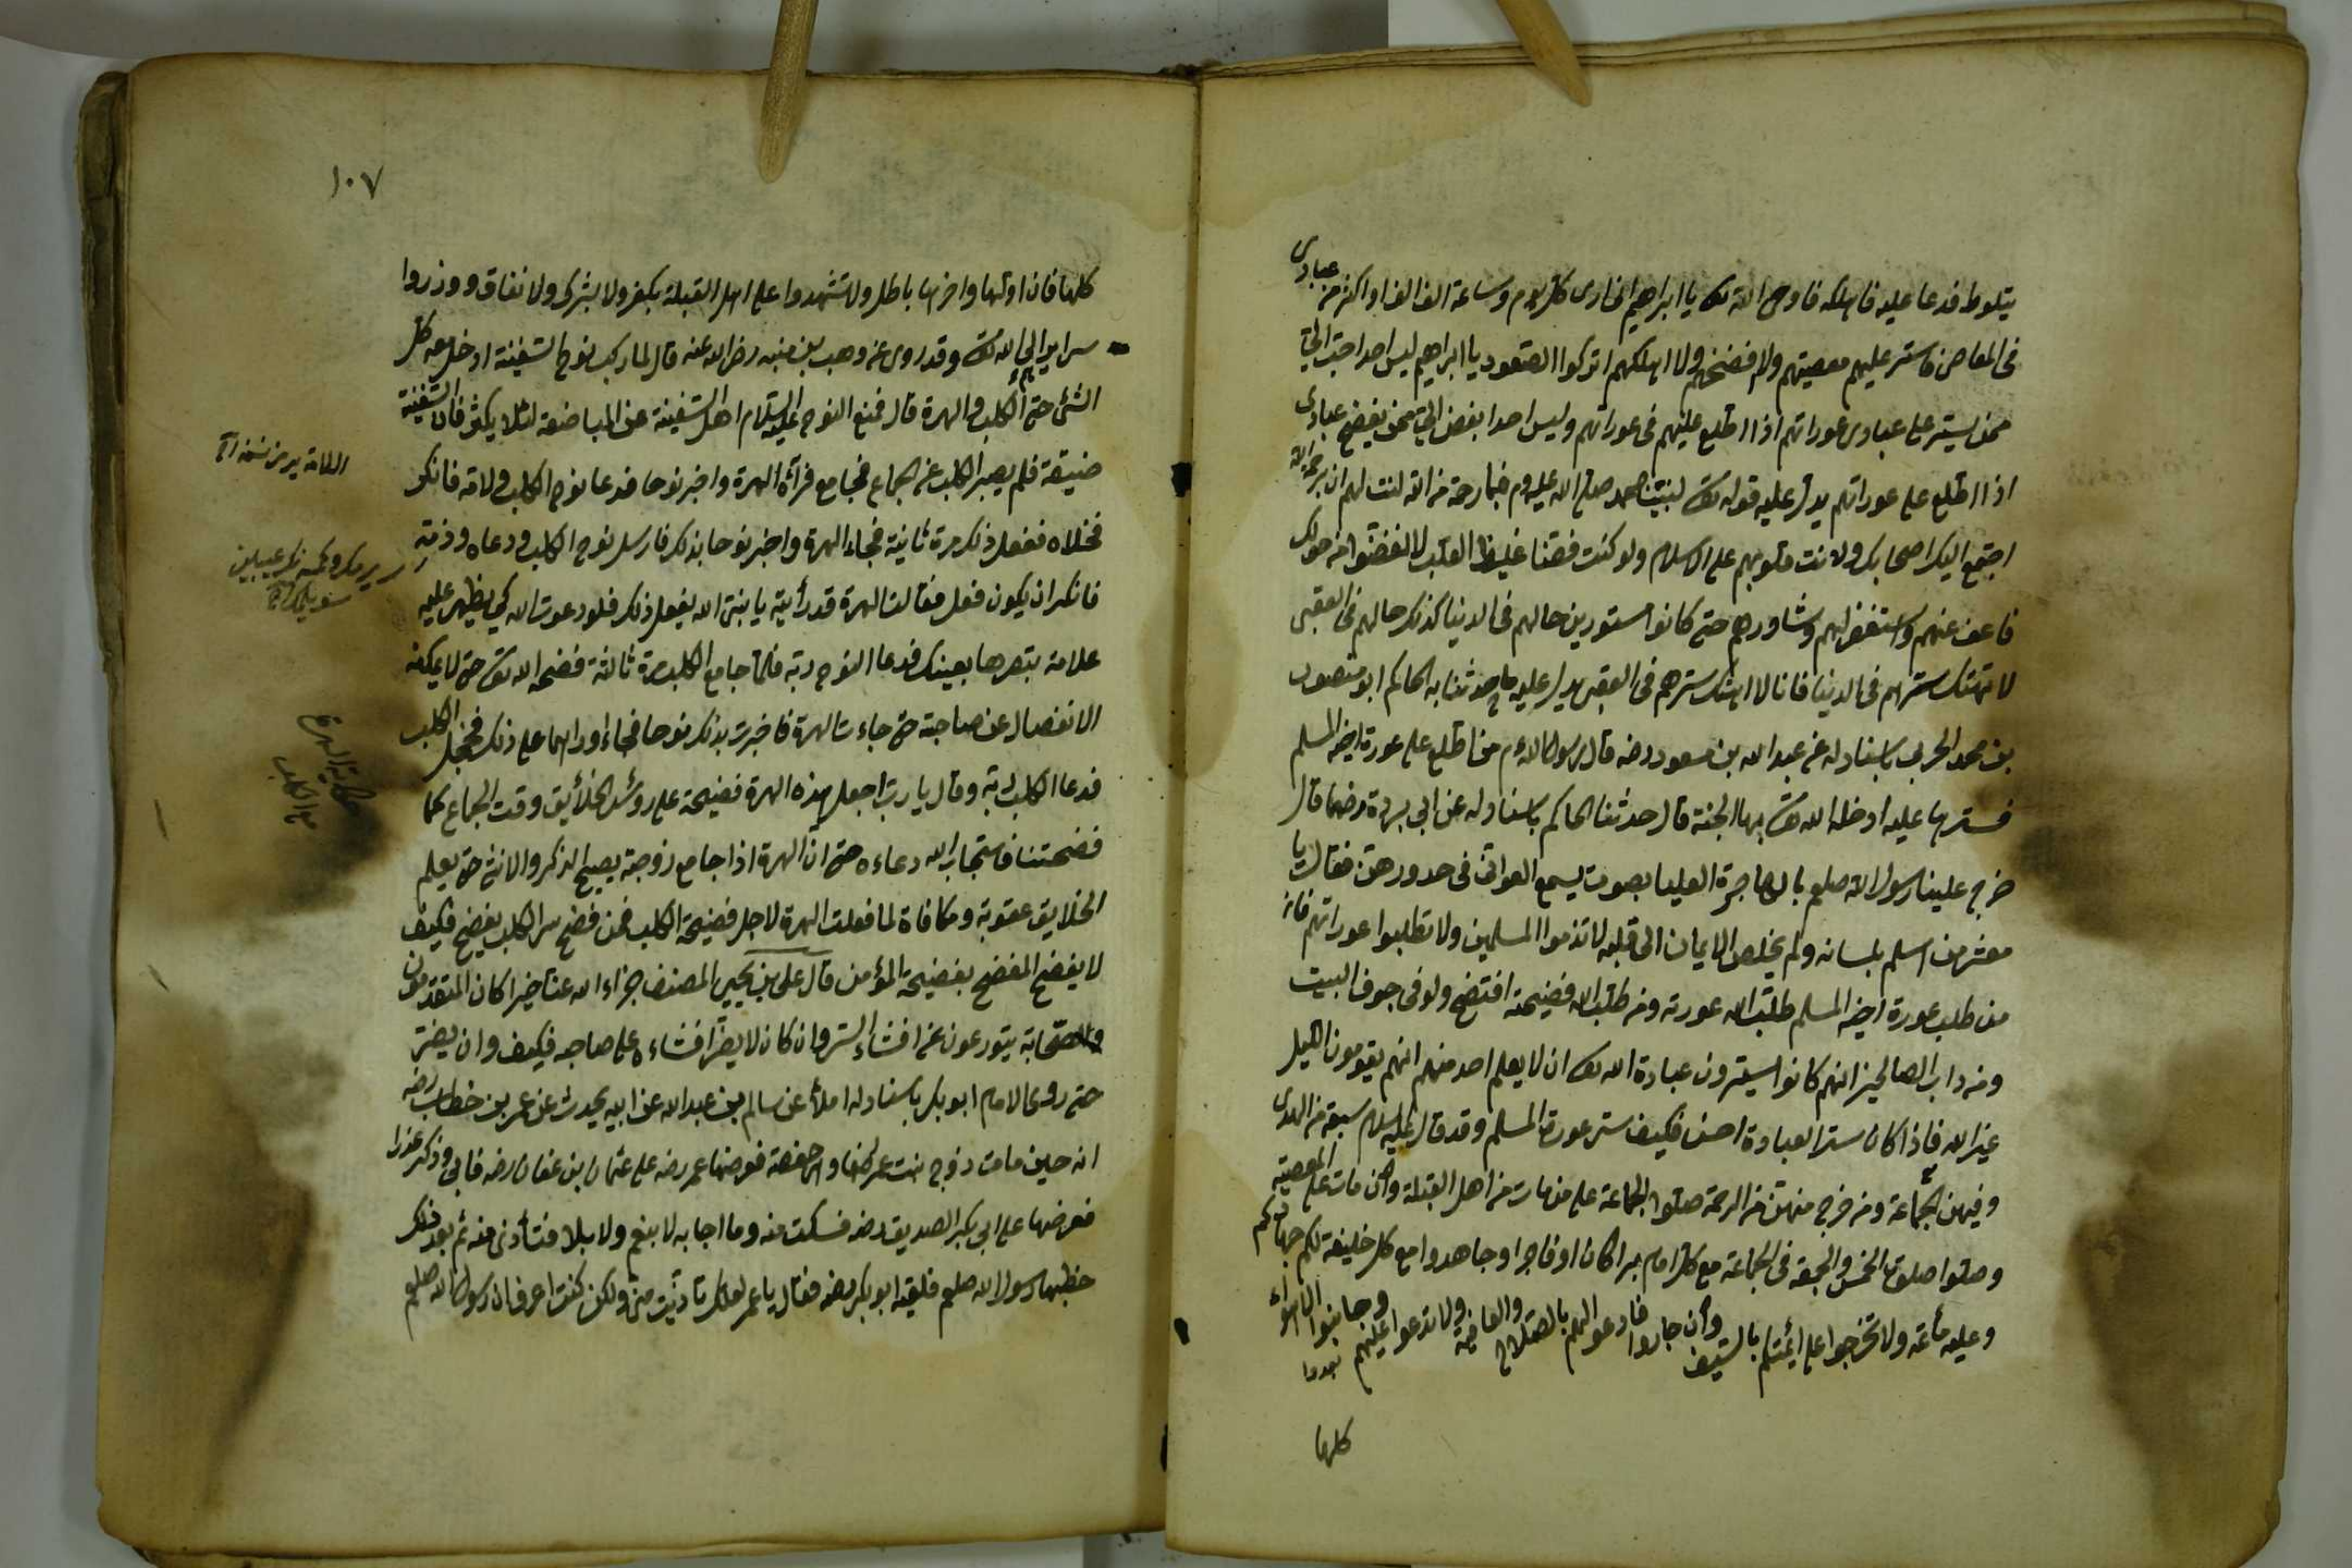 يتلوط فدعا عليه فاهلكه فاوحى الله تعالى يا ابراهيم انى ارى كل يوم وساعة الف الف او اكثر من عبادى
فى المعاصى فاستر عليهم معصيتهم ولم افضحهم ولا اهلكهم اتركوا الصعود يا ابراهيم ليس احد احبّ الىّ
ممن يستر على عبادى عوراتهم اذا اطلع عليهم فى عوراتهم وليس احد ابغض الىّ ممن يفضح عبادى
اذا اطلع على عوراتهم يدل عليه قوله تعالى لنبيّنا محمد صلى الله عليه وم فبما رحمة من الله لنت لهم اى برحمة الله
اجتمع اليك اصحابك ولانت قلوبهم على الاسلام ولو كنت فظا غليظ القلب لانفضوا من حولك
فاعف عنهم واستغفر لهم وشاورهم حتى كانوا مستورين حالهم فى الدنيا كذلك حالهم فى العقبى
لا تهتك سترهم فى الدنيا فانا لا اهتك سترهم فى العقبى يدل عليه ما حدثنا به الحاكم ابو منصور
بن محمد الحربى باسناد له عن عبد الله بن مسعود رضه قال رسول الله م من اطلع على عورة اخيه المسلم
فسترها عليه ادخله الله تعالى بها الجنة قال حدثنا الحاكم باسناد له عن ابى بردة رضهما قال
خرج علينا رسول الله صلعم بالهاجرة العليا بصوت يسمع العواتق فى خدورهن فقال يا
معشر من اسلم بلسانه ولم يخلص الايمان الى قلبه لا تذموا المسلمين ولا تطلبوا عوراتهم فانه
من طلب عورة اخيه المسلم طلب الله عورته ومن طلب الله فضيحته افتضح ولو فى جوف البيت
ومن داب الصالحين انهم كانوا يسترون عبادة الله تعالى ان لا يعلم احد منهم انهم يقومون الليل
غير الله فاذا كان ستر العبادة احسن فكيف ستر عورة المسلم وقد قال عليه السلام سبعة من الهدى
وفيهن الجماعة ومن خرج منهن من الرحمة صلوة الجماعة على من مات من اهل القبلة وان مات على المعصية
وصلوا صلوة الخمس والجمعة فى الجماعة مع كل امام برا كان او فاجرا وجاهدوا مع كل خليفة لكم جهادكم
وعليه مأثمه ولا تخرجوا على ائمتكم بالسيف وان جاروا فادعوا لهم بالصلاح والعافية ولا تدعوا عليهم وجانبوا الاهواء
كلها
١٠٧
كلها فان اولها واخرها باطل ولا تشهدوا على اهل القبلة بكفر ولا بشرك ولا نفاق وذروا
سرايرهم الى الله تعالى وقد روى عن وهب بن منبه رضى الله عنه قال لما ركب نوح السفينة ادخل معه كل
الشئ حتى الكلب والهرة قال فمنع النوح عليه السلام اهل السفينة عن المباضعة لئلا يكثر فان السفينة
ضيقة فلم يصبر الكلب عن الجماع فجامع فرآه الهرة واخبر نوحا فدعا نوح الكلب ولامه فانكر
فخلاه ففعل ذلك مرة ثانية فجاء الهرة واخبر نوحا بذلك فارسل نوح الكلب ودعاه وذمه
فانكر ان يكون فعل فقالت الهرة قد رأيته يا نبى الله يفعل ذلك فلو دعوت الله كى يظهر عليه
علامة تبصرها بعينك فدعا النوح ربه فلما جامع الكلب مرة ثالثة فضحه الله تعالى حتى لا يمكنه
الانفصال عن صاحبته حتى جاءت الهرة فاخبرت بذلك نوحا فجاء وراهما على ذلك فخجل الكلب
فدعا الكلب ربه وقال يا رب اجعل هذه الهرة فضيحة على رؤس الخلائق وقت الجماع كما
فضحتنا فاستجاب الله دعاءه حتى ان الهرة اذا جامع زوجته يصيح الذكر والانثى حتى يعلم
الخلايق عقوبة ومكافاة لما فعلت الهرة لاجل فضيحة الكلب فمن فضح سر الكلب يفضح فكيف
لا يفضح المفضح بفضيحة المؤمن قال على بن يحيى المصنف جزاه الله عنا خيرا كان المتقدمون
والصحابة يتورعون عن افشاء الستر وان كان لا يضر افشاءه على صاحبه فكيف وان يضر
حتى روى الامام ابو بكر باسناد له املأ عن سالم بن عبد الله عن ابيه يحدث عن عمر بن خطاب رضه
انه حين مات زوج بنت عمر رضهما واسمها حفصة فعرضها عمر رضه على عثمان بن عفان رضه فابى وذكر عذرا
فعرضها على ابى بكر الصديق رضه فسكت منه وما اجابه لا بنعم ولا بلا فتأذى منه ثم بعد ذلك
خطبها رسول الله صلعم فلقيه ابو بكر رضه فقال يا عمر لعلك تأذيت منى ولكن كنت اعرف ان رسول الله صلعم
حكاية الهرة
مع الكلب